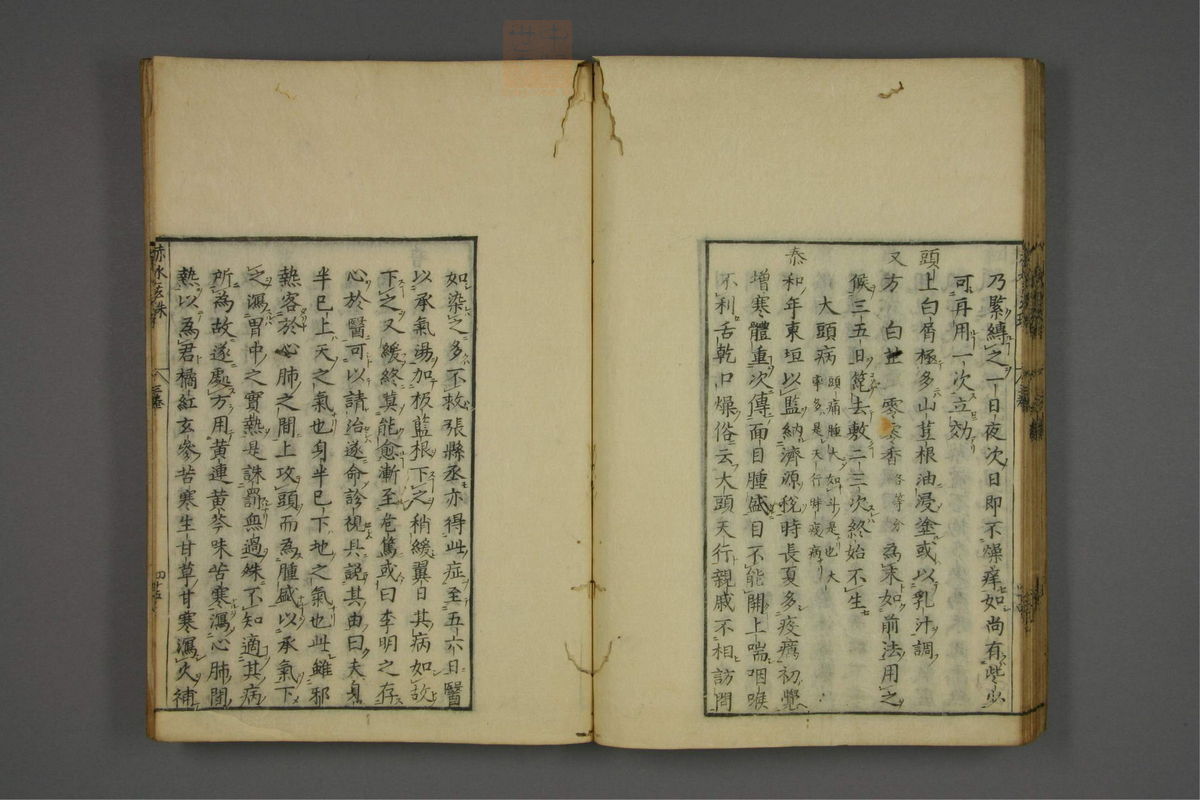 乃緊縛之一日夜次日即不燥痒如尚有些少
可再用一次立効
頭上白屑極多山荳根油浸塗或以乳汁調
又方 白芷 零零香各等分為末如前法用之
候三五日篦去敷二三次終始不生
大頭病頭痛腫大如斗是也大率多是天行時疫病
泰和年東垣以監納濟源稅時長夏多疫癘初覺
增寒體重次傳面目腫盛目不能開上喘咽喉
不利舌乾口燥俗云大頭天行親戚不相訪問
如染之多不救張縣丞亦得此症至五六日醫
以承氣湯加板藍根下之稍緩翼日其病如故
下之又緩終莫能愈漸至危篤或曰李明之存
心於醫可以請治遂命診視具說其由曰夫身
半已上天之氣也身半已下地之氣也此雖邪
熱客於心肺之間上攻頭而為腫盛以承氣下
之瀉胃中之實熱是誅罰無過殊不知適其病
所為故遂處方用黃連黃芩味苦寒瀉心肺間
熱以為君橘紅玄參苦寒生甘草甘寒瀉火補
赤水玄珠 三卷 四十五